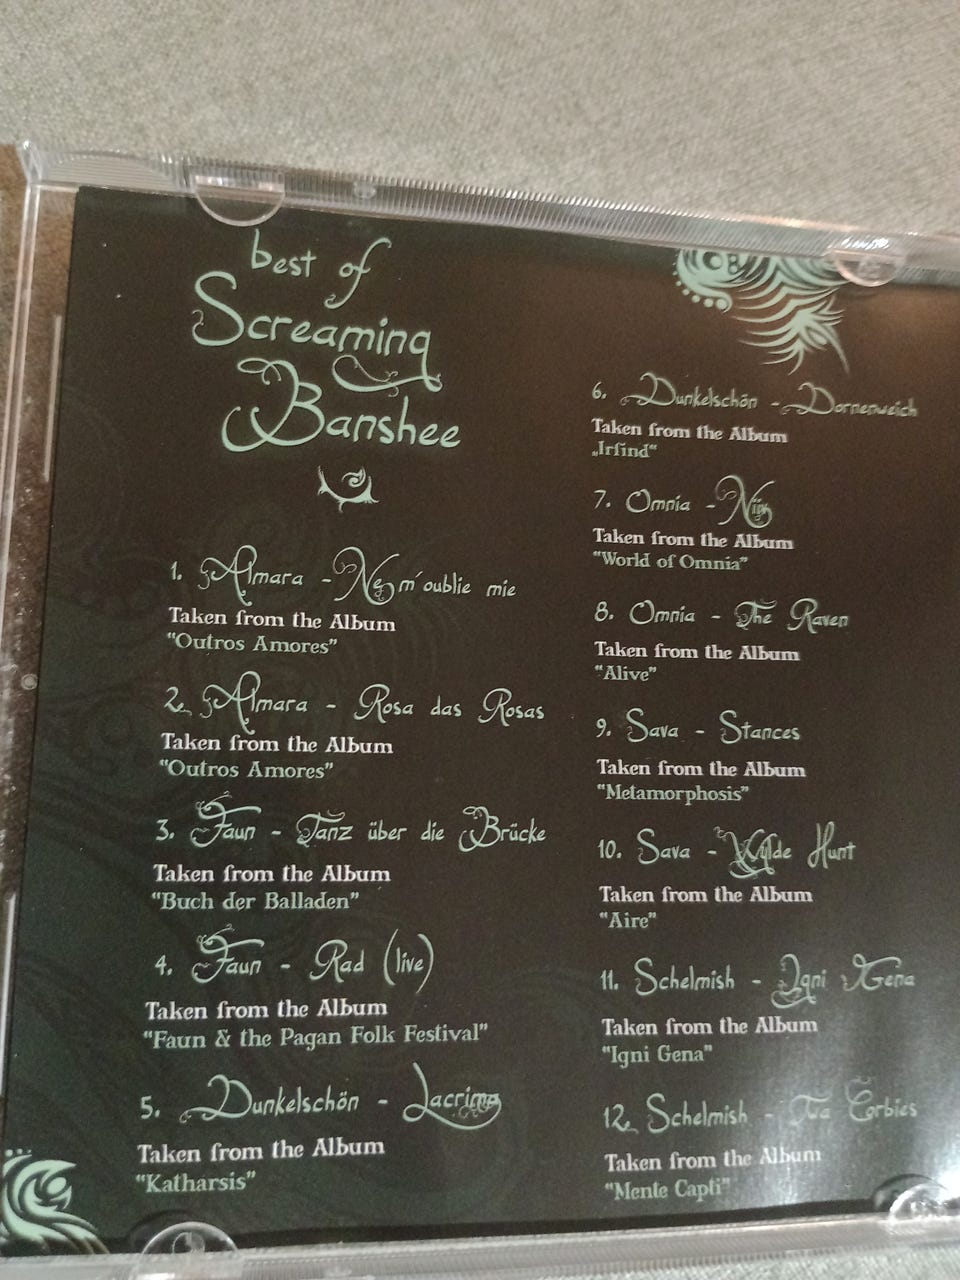 best of
Screaming
Banshee
1. Almara - Ne m´oublie mie
Taken from the Album
"Outros Amores"
2. Almara - Rosa das Rosas
Taken from the Album
"Outros Amores"
3. Faun - Tanz über die Brücke
Taken from the Album
"Buch der Balladen"
4. Faun - Rad (live)
Taken from the Album
"Faun & the Pagan Folk Festival"
5. Dunkelschön - Lacrima
Taken from the Album
"Katharsis"
6. Dunkelschön - Dornenweich
Taken from the Album
„Irfind“
7. Omnia - Niïv
Taken from the Album
"World of Omnia"
8. Omnia - The Raven
Taken from the Album
"Alive"
9. Sava - Stances
Taken from the Album
"Metamorphosis"
10. Sava - Wylde Hunt
Taken from the Album
"Aire"
11. Schelmish - Igni Gena
Taken from the Album
"Igni Gena"
12. Schelmish - Tva Corbies
Taken from the Album
"Mente Capti"